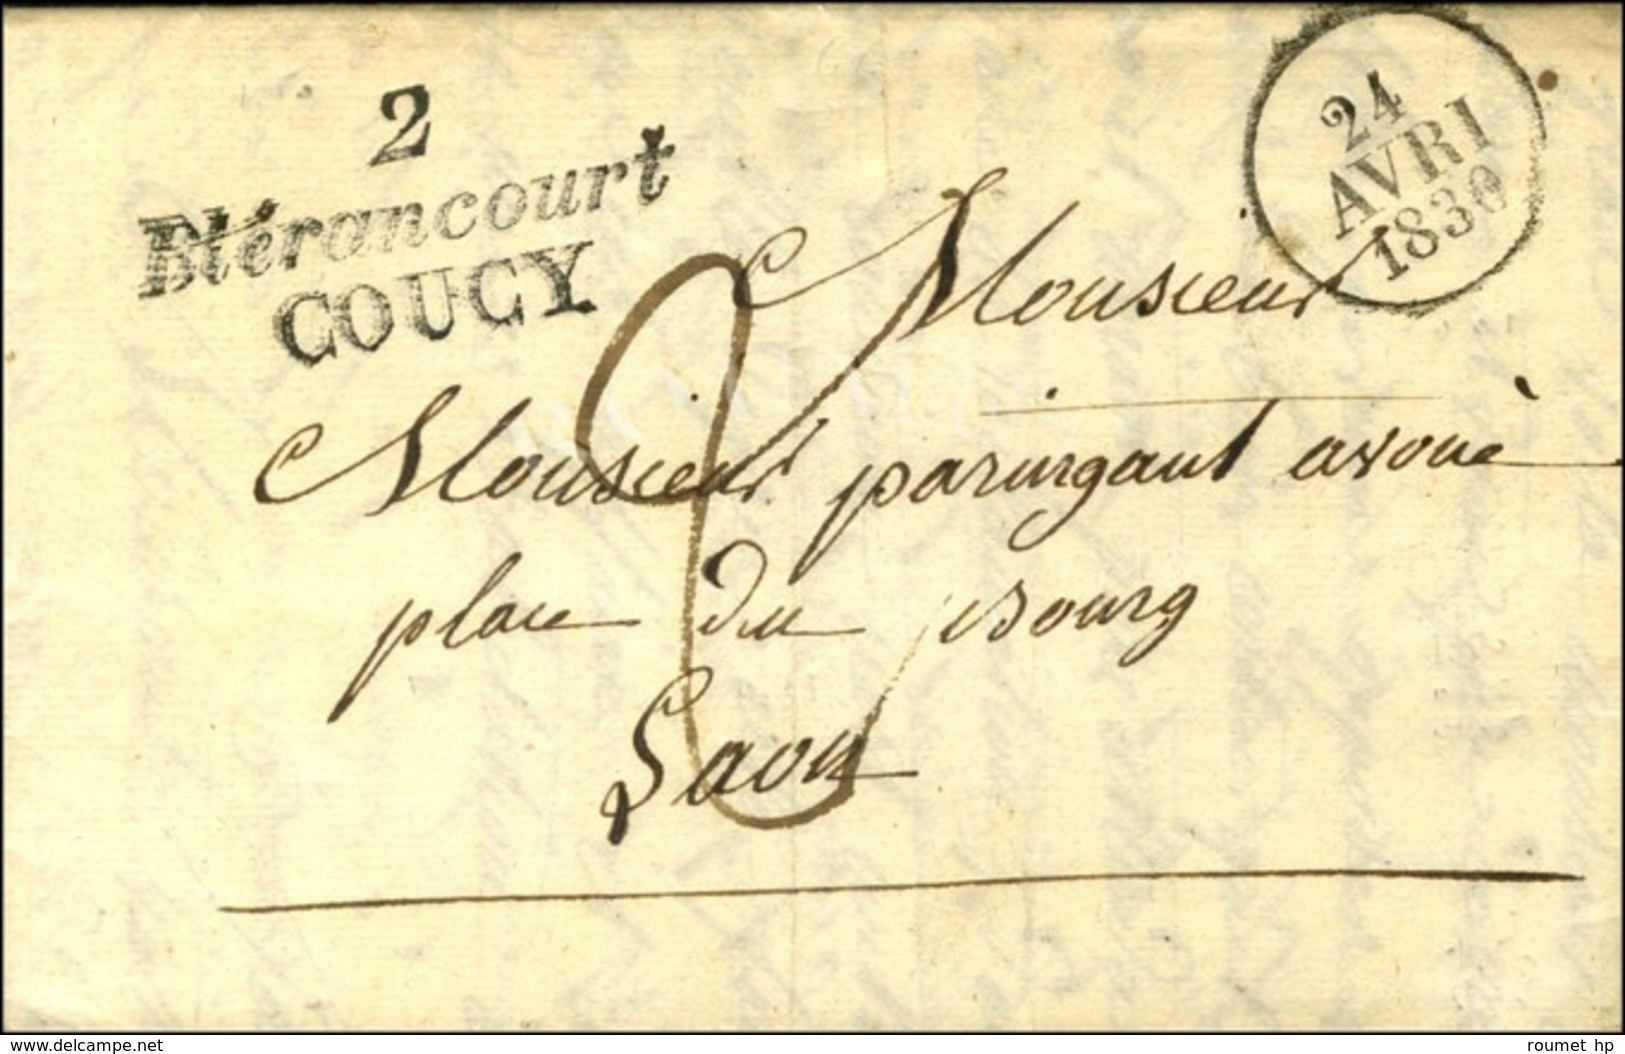 2
Blérancourt
COUCY
24
AVRI
1830
Monsieur
Monsieur paringant avoué
place du Bourg
Laon
delcampe.net
roumet hp